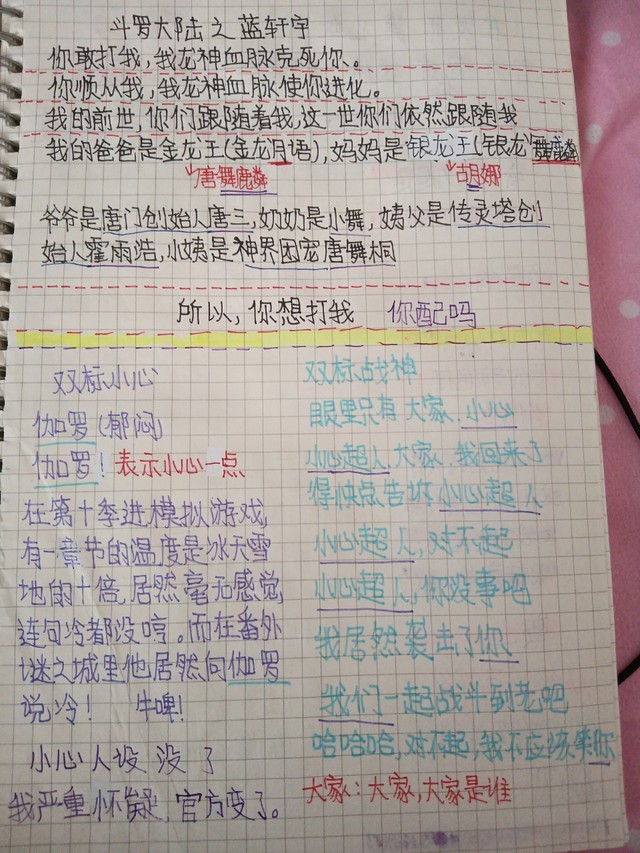 斗罗大陆之蓝轩宇
你敢打我，我龙神血脉克死你、。
你顺从我，我龙神血脉使你进化。
我的前世，你们跟随着我，这一世你们依然跟随我
我的爸爸是金龙王（金龙月语），妈妈是银龙王（银龙舞麟
唐舞麟
胡娜
爷爷是唐门创始人唐三，奶奶是小舞，姨父是传灵塔创
始人霍雨浩，小姨是神界团宠唐舞桐
所以，你想打我 你配吗
双标小心
伽罗（郁闷）
伽罗！表示小心一点
在第十季进模拟游戏，
有一章节的温度是冰天雪
地的十倍，居然毫无感觉，
连句冷都没哼。而在番外
谜之城里他居然向伽罗
说冷！ 牛啤！
小心人设没了
我严重怀疑，官方变了。
双标战神
眼里只有大家，小心
小心超人，大家，我回来了
得快点告诉小心超人
小心超人，对不起
小心超人，你没事吧
我居然袭击了你
我们一起战斗到老吧
哈哈哈，对不起，我不应该笑你
大家：大家，大家是谁